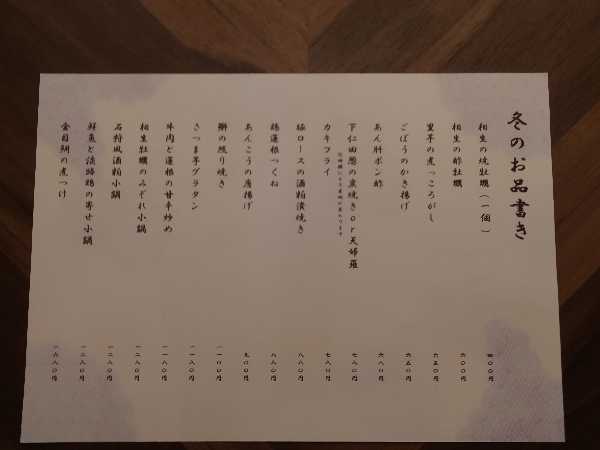 冬のお品書き
相生の焼牡蠣（一個） 四〇〇円
相生の酢牡蠣 六〇〇円
里芋の煮っころがし 六五〇円
ごぼうのかき揚げ 六五〇円
あん肝ポン酢 六八〇円
下仁田葱の炭焼きor天婦羅 七八〇円
カキフライ 七八〇円
豚ロースの酒粕漬焼き 八八〇円
鶏蓮根つくね 八八〇円
あんこうの唐揚げ 九〇〇円
鰤の照り焼き 一一〇〇円
さつま芋グラタン 一一八〇円
牛肉と蓮根の甘辛炒め 一一八〇円
相生牡蠣のみぞれ小鍋 一二八〇円
石狩風酒粕小鍋 一二八〇円
鮮魚と淡路鶏の寄せ小鍋 一二八〇円
金目鯛の煮つけ 一六八〇円